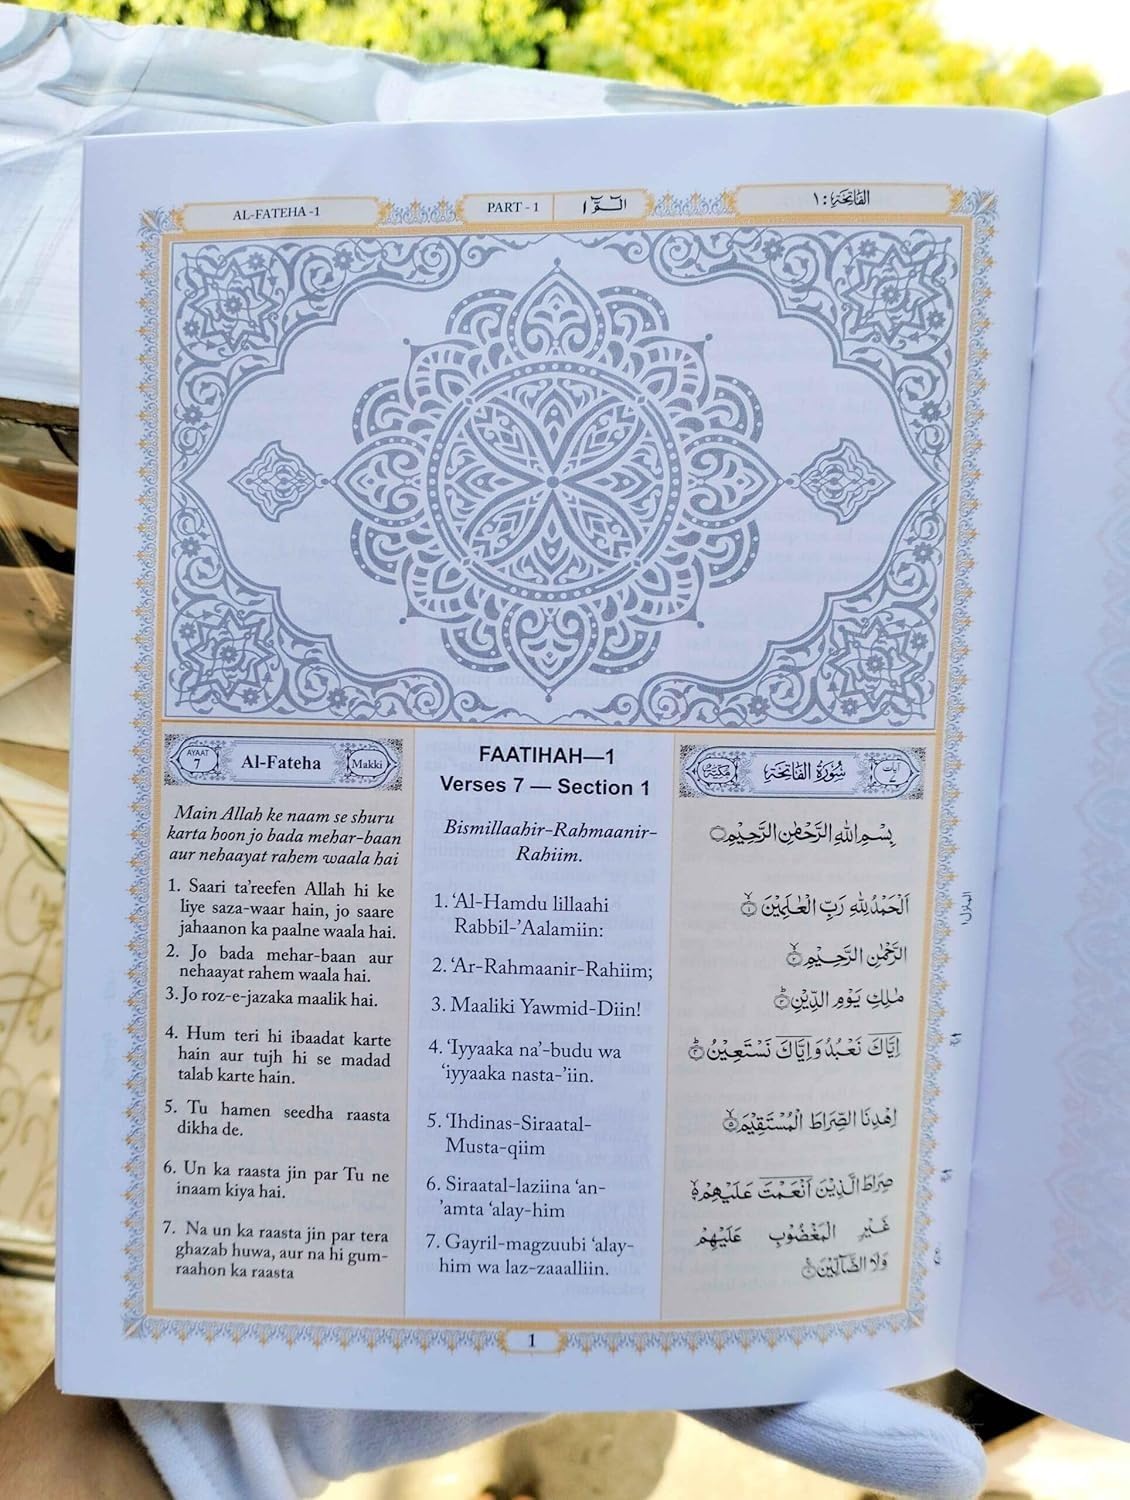 AL-FATEHA -1
PART - 1
الٓـمّٓ ١
الفَاتِحَة: ١
AYAAT
7
Al-Fateha
Makki
Main Allah ke naam se shuru
karta hoon jo bada mehar-baan
aur nehaayat rahem waala hai
1. Saari ta'reefen Allah hi ke
liye saza-waar hain, jo saare
jahaanon ka paalne waala hai.
2. Jo bada mehar-baan aur
nehaayat rahem waala hai.
3.Jo roz-e-jazaka maalik hai.
4. Hum teri hi ibaadat karte
hain aur tujh hi se madad
talab karte hain.
5. Tu hamen seedha raasta
dikha de.
6. Un ka raasta jin par Tu ne
inaam kiya hai.
7. Na un ka raasta jin par tera
ghazab huwa, aur na hi gum-
raahon ka raasta
FAATIHAH—1
Verses 7 — Section 1
Bismillaahir-Rahmaanir-
Rahiim.
1. ‘Al-Hamdu lillaahi
Rabbil-’Aalamiin:
2. ‘Ar-Rahmaanir-Rahiim;
3. Maaliki Yawmid-Diin!
4. ‘Iyyaaka na’-budu wa
‘iyyaaka nasta-’iin.
5. ‘Ihdinas-Siraatal-
Musta-qiim
6. Siraatal-laziina ‘an-
’amta ‘alay-him
7. Gayril-magzuubi ‘alay-
him wa laz-zaaalliin.
اٰيات
٧
سُوْرَةُ الْفَاتِحَة
مَكِّيَّة
بِسْمِ اللّٰهِ الرَّحْمٰنِ الرَّحِيْمِ
اَلْحَمْدُ لِلّٰهِ رَبِّ الْعٰلَمِيْنَ ۙ۝۱
الرَّحْمٰنِ الرَّحِيْمِ ۙ۝۲
مٰلِكِ يَوْمِ الدِّيْنِ ۝۳
اِيَّاكَ نَعْبُدُ وَ اِيَّاكَ نَسْتَعِيْنُ ۝۴
اِهْدِنَا الصِّرَاطَ الْمُسْتَقِيْمَ ۙ۝۵
صِرَاطَ الَّذِيْنَ اَنْعَمْتَ عَلَيْهِمْ ۙ۝۶
غَيْرِ الْمَغْضُوْبِ عَلَيْهِمْ
وَلَا الضَّآلِّيْنَ ۝۷
المنزل ١
1